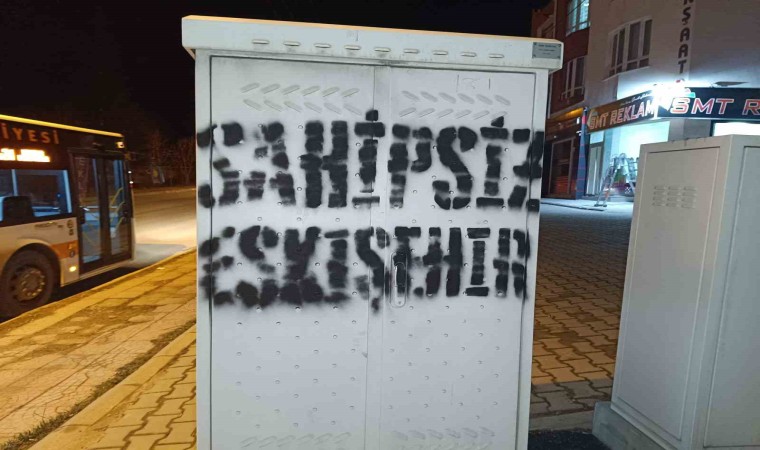 SAHİPSİZ
ESKİŞEHİR
SMT REKLAM
SMT REK
İYESİ